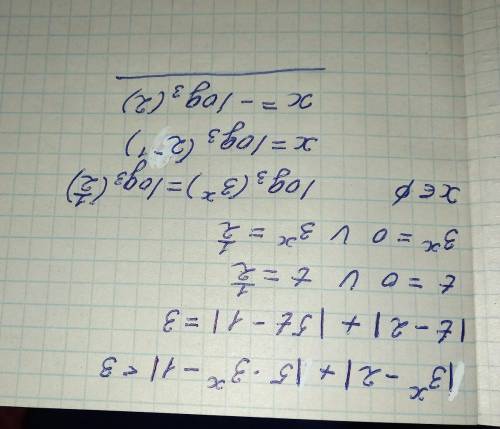 |3ˣ - 2| + |5 · 3ˣ - 1| < 3
|t - 2| + |5t - 1| = 3
t = 0 ∨ t = 1/2
3ˣ = 0 ∨ 3ˣ = 1/2
x ∈ ∅ log₃(3ˣ) = log₃(1/2)
x = log₃(2⁻¹)
x = - log₃(2)